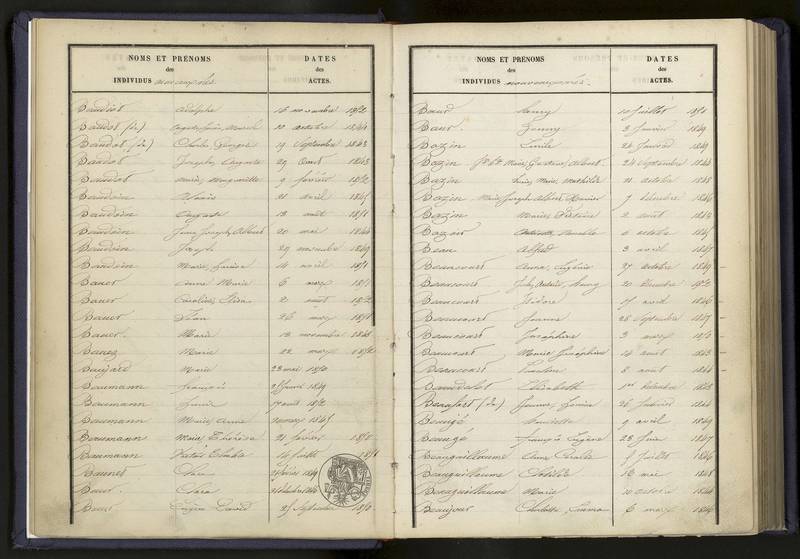 NOMS ET PRÉNOMS
des
INDIVIDUS nouveaux nés.
DATES
des
ACTES.
Baudot Adolphe 16 novembre 1852
Baudot (de) 20 octobre 1844
Baudot (de) Charles Georges 19 Septembre 1843
Baudot Joseph, Auguste 29 Aout 1843
Baudot Marie, Marguerite 9 février 1852
Baudoin Alexis 21 avril 1845
Baudoin Auguste 18 août 1851
Baudoin Jean Joseph, Albert 20 mai 1844
Baudoin Joseph 29 novembre 1849
Baudoin Marie, Louise 14 avril 1851
Bauer Anne Marie 6 mars 1851
Bauer Caroline, Lisa 2 août 1852
Bauer Jean 26 mars 1851
Bauer Marie 18 novembre 1848
Marie 22 mars 1852
Baujard Marie 23 mai 1850
Baumann François 1849
Baumann Louise août 1852
Baumann Marie, Anne mars 1845
Baumann Marie, Thérèse 21 février 1851
Baumann 14 Juillet 1851
Baunet février 1849
Baur. Clara
Baur Eugène David 25 Septembre 1850
NOMS ET PRÉNOMS
des
INDIVIDUS nouveaux nés.
DATES
des
ACTES.
Baur Henry 10 Juillet 1851
Baur Jenny 3 Janvier 1849
Bazin Emile 24 Janvier 1849
Bazin Marie, Gustave, Albert 24 Septembre 1844
Bazin Marie, Mathilde 21 octobre 1848
Bazin Marie Joseph Albert Xavier 7 décembre 1846
Bazin Marie, Victoire 2 août 1844
6 octobre 1845
Beau Alfred 3 avril 1847
Beaucourt Anna, Eugénie 27 octobre 1849
Beaucourt 20 décembre 1852
Beaucourt Isidore 17 avril 1846
Beaucourt Jeanne 28 Septembre 1847
Beaucourt Joséphine 3 mars 1850
Beaucourt Marie Joséphine 14 août 1843
Beaucourt 8 août 1844
Elisabeth 1er décembre 1843
Beaufort (de) Jeanne, Louise 26 Janvier 1844
Beaugé Henriette 9 avril 1849
Beaugé François Eugène 28 Juin 1847
Beauguillaume 8 Juillet 1846
Beauguillaume Clotilde 16 mai 1848
Beauguillaume Marie 10 octobre 1844
Beaujour Charlotte, Emma 6 mars 1849